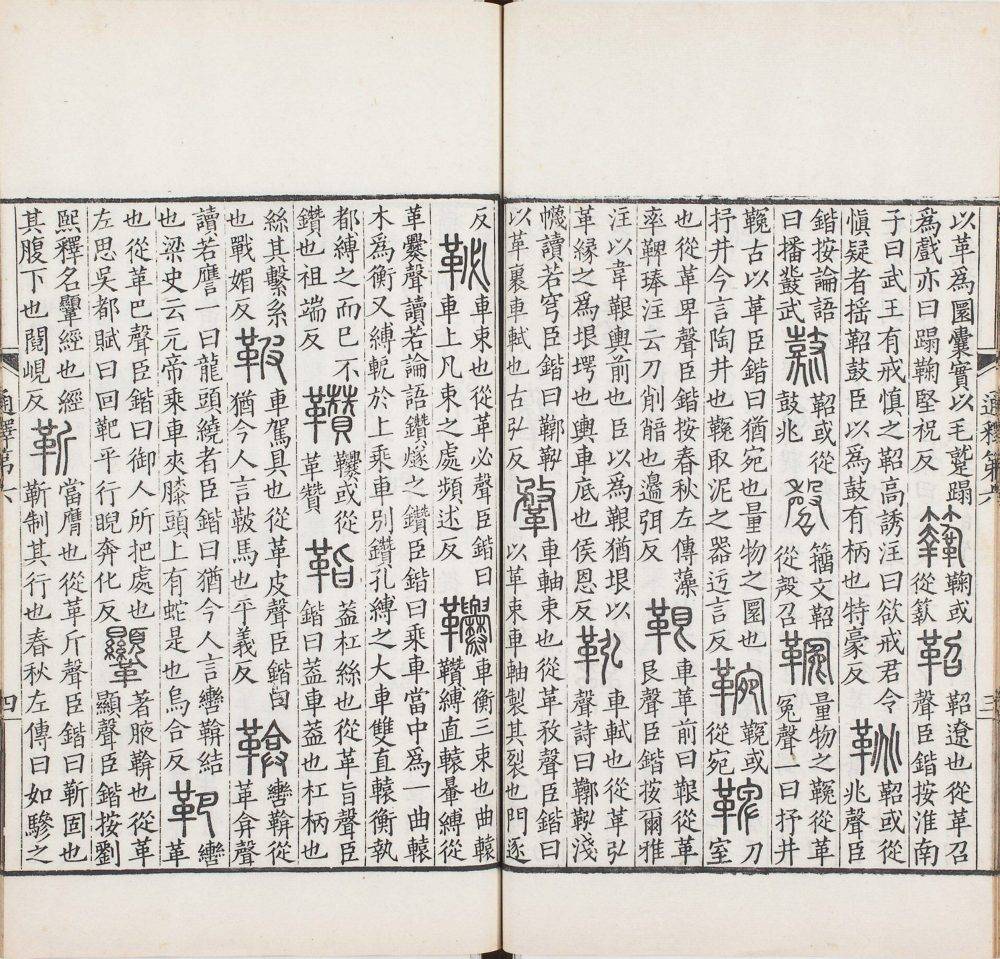 以革爲圜囊實以毛蹵蹋爲戲亦曰蹋鞠堅祝反 鞠或從 鞀 鞀遼也從革召聲臣鍇按淮南
子曰武王有戒慎之鞀高誘注曰欲戒君令慎疑者摇鞀鼓臣以爲鼓有柄也特豪反 鞉 鞀或從兆聲臣
鍇按論語曰播鼗武 鼗 鞀或從鼓兆 磬 籒文鞀從殸召 量物之鞔從革冤聲一曰抒井
鞔古以革臣鍇曰猶宛也量物之圜也抒井今言陶井也鞔取泥之器迃言反 鞔或從宛 鞞 刀室
也從革卑聲臣鍇按春秋左傳藻率鞞琫注云刀削䚯也邊弭反 鞎 車革前曰鞎從革艮聲臣鍇按爾雅
注以韋鞎輿前也臣以爲鞎猶垠以革緣之爲垠堮也輿車底也侯恩反 鞃 車軾也從革弘聲詩曰鞹鞃淺
幭讀若穹臣鍇曰鞹鞃以革裹車軾也古弘反 鞪 車軸束也從革敄聲臣鍇曰以革束車軸製其裂也門逐
反 䩛 車束也從革必聲臣鍇曰車上凡束之處頻述反 𩎑 車衡三束也曲轅䪇縛直轅暈縛從
革爨聲讀若論語鑽燧之鑽臣鍇曰乘車當中爲一曲轅木爲衡又縛軛於上乘車別鑽孔縛之大車雙直轅衡執
都縛之而巳不鑽也祖端反 䪇 𩎑或從革贊 䩢 葢杠絲也從革旨聲臣鍇曰葢車葢也杠柄也
絲其繫系也戰媚反 鞁 車駕具也從革皮聲臣鍇曰猶今人言鞁馬也平義反 鞥 轡鞥從革弇聲
讀若譍一曰龍頭繞者臣鍇曰猶今人言轡鞥結也梁史云元帝乘車夾膝頭上有蛇是也烏合反 靶 轡革
也從革巴聲臣鍇曰御人所把處也左思吳都賦曰回靶乎行睨奔化反 韅 著腋鞥也從革顯聲臣鍇按劉
熙釋名韅經也經其腹下也閱峴反 靳 當膺也從革斤聲臣鍇曰靳固也靳制其行也春秋左傳曰如驂之
通釋第六
三
通釋第六
四